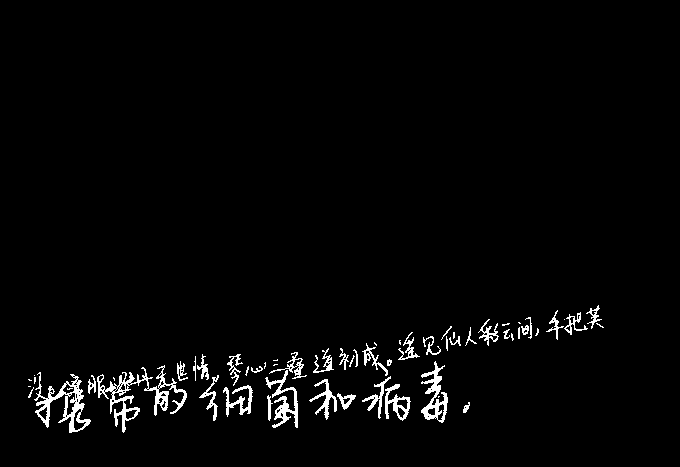 服还丹无世情,琴心三叠道初成。遥见仙人彩云间,手把芙
携带的细菌和病毒.